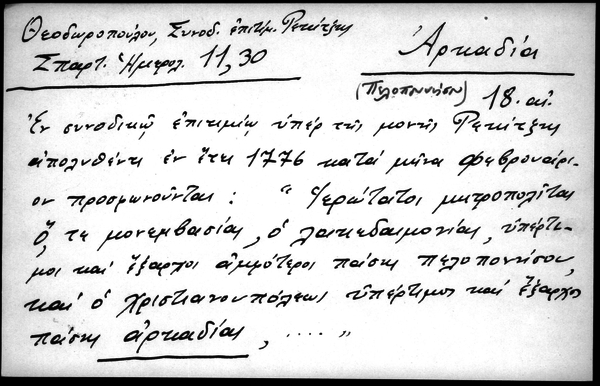 Θεοδωροπούλου, Συνοδ. ἐπιτίμ. Ρεκίτζης
Σπαρτ. Ἡμερολ. 11, 30
Ἀρκαδία
(Πελοποννήσου) 18. αἰ.
Ἐν συνοδικῷ ἐπιτιμίῳ ὑπὲρ τῆς μονῆς Ρεκίτζης
ἀπολυθέντι ἐν ἔτει 1776 κατὰ μῆνα Φεβρουάρι-
ον προσφωνοῦνται : " Ἱερώτατοι μητροπολῖται
ὅ, τε μονεμβασίας, ὁ λακεδαιμονίας, ὑπέρτι-
μοι καὶ ἔξαρχοι ἀμφότεροι πάσης πελοποννήσου,
καὶ ὁ χριστιανουπόλεως ὑπέρτιμος καὶ ἔξαρχος
πάσης ἀρκαδίας, .... "